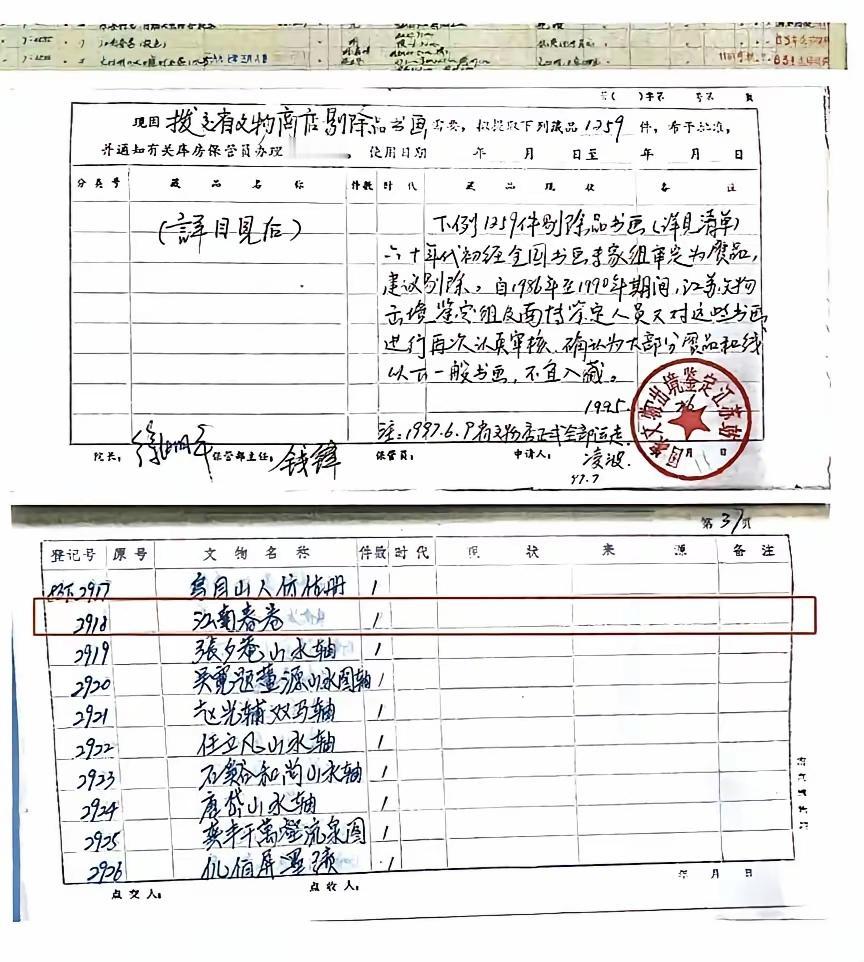 现因 拨交省文物商店剔除品书画 需要，拟提取下列藏品 1259 件，希予批准，
并通知有关库房保管员办理 使用日期 年 月 日至 年 月 日
分类号 藏品名称 件数 时代 藏品现状 备注
(詳目見后)
下例1259件剔除品书画(详见清单)
六十年代初经全国书画专家组审定为赝品，
建议剔除。自1986年至1990年期间，江苏文物
出境鉴定组及南博鉴定人员又对这些书画
进行再次认真审核，确认为大部分赝品和线
以下一般书画，不宜入藏。
1995.
国家文物出境鉴定江苏站
注：1997.6.9 省文物店正式全部运走
院长： 保管部主任：钱锋 保管员： 申请人：凌波 月 日
97.7
第31页
登记号 原号 文物名称 件数 时代 现状 来源 备注
2917 烏目山人仿古册 1
2918 江南春卷 1
2919 張夕菴山水轴 1
2920 吴寬题董源山水图轴 1
2921 赵光辅双马轴 1
2922 任立凡山水轴 1
2923 石谿和尚山水轴 1
2924 唐岱山水轴 1
2925 龚半千萬壑流泉图 1
2926 1
点交人： 点收人： 年 月 日